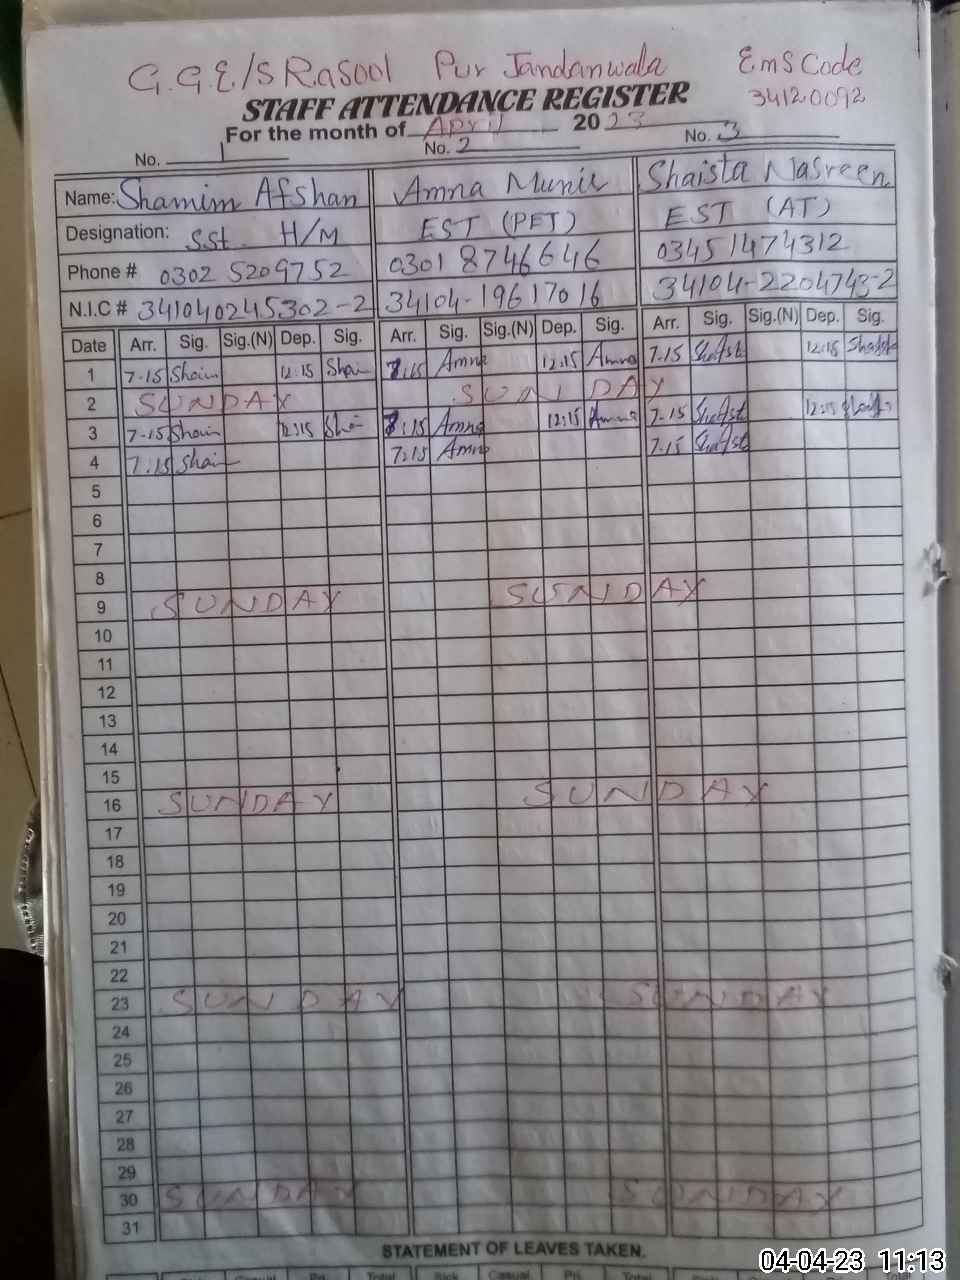 G.G.E/S Rasool Pur Jandanwala EmS Code
34120092
STAFF ATTENDANCE REGISTER
For the month of April 2023
No. 1 No. 2 No. 3
Name: Shamim Afshan Amna Munir Shaista Nasreen
Designation: SSt. H/M EST (PET) EST (AT)
Phone # 0302 5209752 0301 8746646 03451474312
N.I.C # 341040245302-2 34104-19617016 34104-2204743-2
Date Arr. Sig. Sig.(N) Dep. Sig. Arr. Sig. Sig.(N) Dep. Sig. Arr. Sig. Sig.(N) Dep. Sig.
1 7-15 Sham 12:15 Sha 7:15 Amna 12:15 Amna 7-15 Shaist 12:15
2 SUNDAY SUNDAY
3 7-15 Sham 12:15 Sha 8:15 Amna 12:15 Amna 7-15 Shaist 12:15
4 7:15 Sham 7:15 Amna 7-15 Shaist
5
6
7
8
9 SUNDAY SUNDAY
10
11
12
13
14
15
16 SUNDAY SUNDAY
17
18
19
20
21
22
23 SUNDAY SUNDAY
24
25
26
27
28
29
30 SUNDAY SUNDAY
31
STATEMENT OF LEAVES TAKEN.
Casual Total Sick Casual Total
04-04-23 11:13